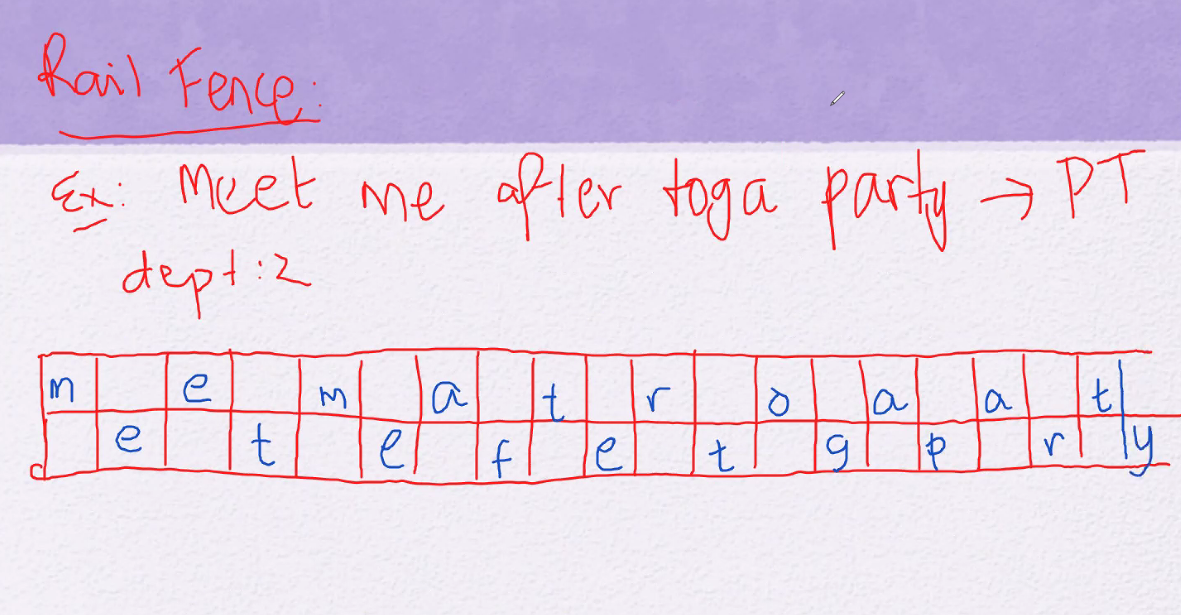 Rail Fence:
Ex: Meet me after toga party → PT
dept:2
m e m a t r o a a t
e t e f e t g p r y